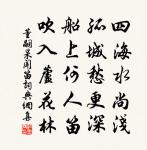 四海水尚淺
孤城愁更深
船上何人笛
吹入蘆花林
董嗣杲聞笛詞典網